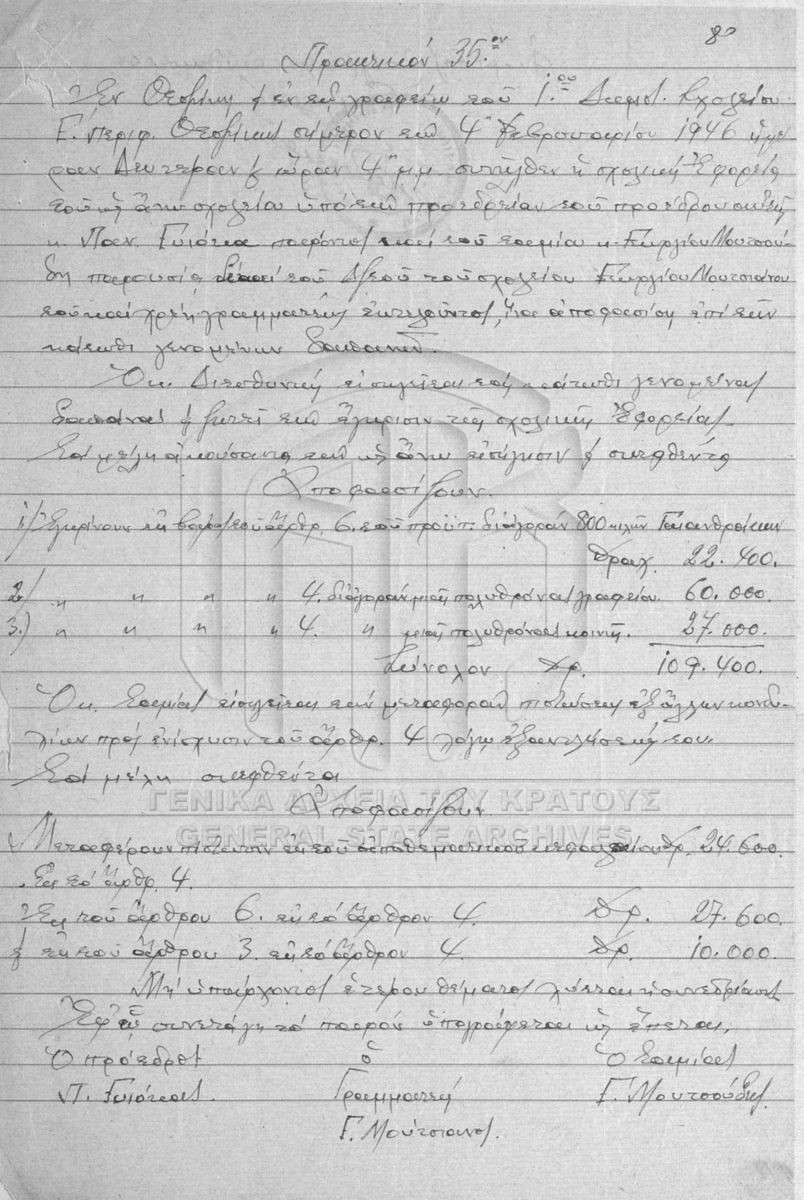 80
Πρακτικόν 35.ον
Ἐν Θεσ/νίκῃ & ἐν τῷ γραφείῳ τοῦ 1.ου Δημοτ. Σχολείου
Γ. περιφ. Θεσ/νίκης σήμερον τῇ 4ῃ Φεβρουαρίου 1946 ἡμέ
ραν Δευτέραν & ὥραν 4ην μ.μ. συνῆλθεν ἡ σχολικὴ Ἐφορεία
τοῦ ὡς ἄνω σχολείου ὑπὸ τὴν προεδρείαν τοῦ προέδρου αὐτῆς
κ. Παν. Γυιόκα παρόντος καὶ τοῦ ταμία κ. Γεωργίου Μουτσού
δη παρουσίᾳ καὶ τοῦ Δ/τοῦ τοῦ σχολείου Γεωργίου Μουτσιάνου
τοῦ καὶ χρέη γραμματέως ἐκτελοῦντος, ἵνα ἀποφασίσῃ ἐπὶ τῶν
κάτωθι γενομένων δαπανῶν.
Ὁ κ. Διευθυντὴς εἰσηγεῖται τὰς κάτωθι γενομένας
δαπάνας & ζητεῖ τὴν ἔγκρισιν τῆς σχολικῆς Ἐφορείας.
Τὰ μέλη ἀκούσαντα τὴν ὡς ἄνω εἰσήγησιν & σκεφθέντα
Ἀποφασίζουν.
1/) Ἐγκρίνουν εἰς βάρος τοῦ ἄρθρ. 6. τοῦ προϋπ. δι' ἀγορὰν 800 κιλῶν Γαιανθράκων
Δραχ. 22.400.
2/) " " " " 4. δι' ἀγορὰν μιᾶς πολυθρόνας γραφείου. 60.000.
3.) " " " " 4. " μιᾶς πολυθρόνας κοινῆς. 27.000.
Σύνολον Δρ. 109.400.
Ὁ κ. Ταμίας εἰσηγεῖται τὴν μεταφορὰν πιστώσεως ἐξ ἄλλων κονδυ-
λίων πρὸς ἐνίσχυσιν τοῦ ἄρθρ. 4 λόγῳ ἐξαντλήσεώς του.
Τὰ μέλη σκεφθέντα
Ἀποφασίζουν
Μεταφέρουν πίστωσιν ἐκ τοῦ ἀποθεματικοῦ κεφαλαίου Δρ. 24.600.
εἰς τὸ ἄρθρ. 4.
Ἐκ τοῦ ἄρθρου 6. εἰς τὸ ἄρθρον 4. Δρ. 27.600.
& ἐκ τοῦ ἄρθρου 3. εἰς τὸ ἄρθρον 4. Δρ. 10.000.
Μὴ ὑπάρχοντος ἑτέρου θέματος λύεται ἡ συνεδρίασις
Ἐφ' ᾧ συνετάγη τὸ παρὸν ὑπογράφεται ὡς ἕπεται.
Ὁ πρόεδρος ὁ Ὁ Ταμίας
Π. Γυιόκας. Γραμματεὺς Γ. Μουτσούδης.
Γ. Μουτσιάνος.
ΓΕΝΙΚΑ ΑΡΧΕΙΑ ΤΟΥ ΚΡΑΤΟΥΣ
GENERAL STATE ARCHIVES